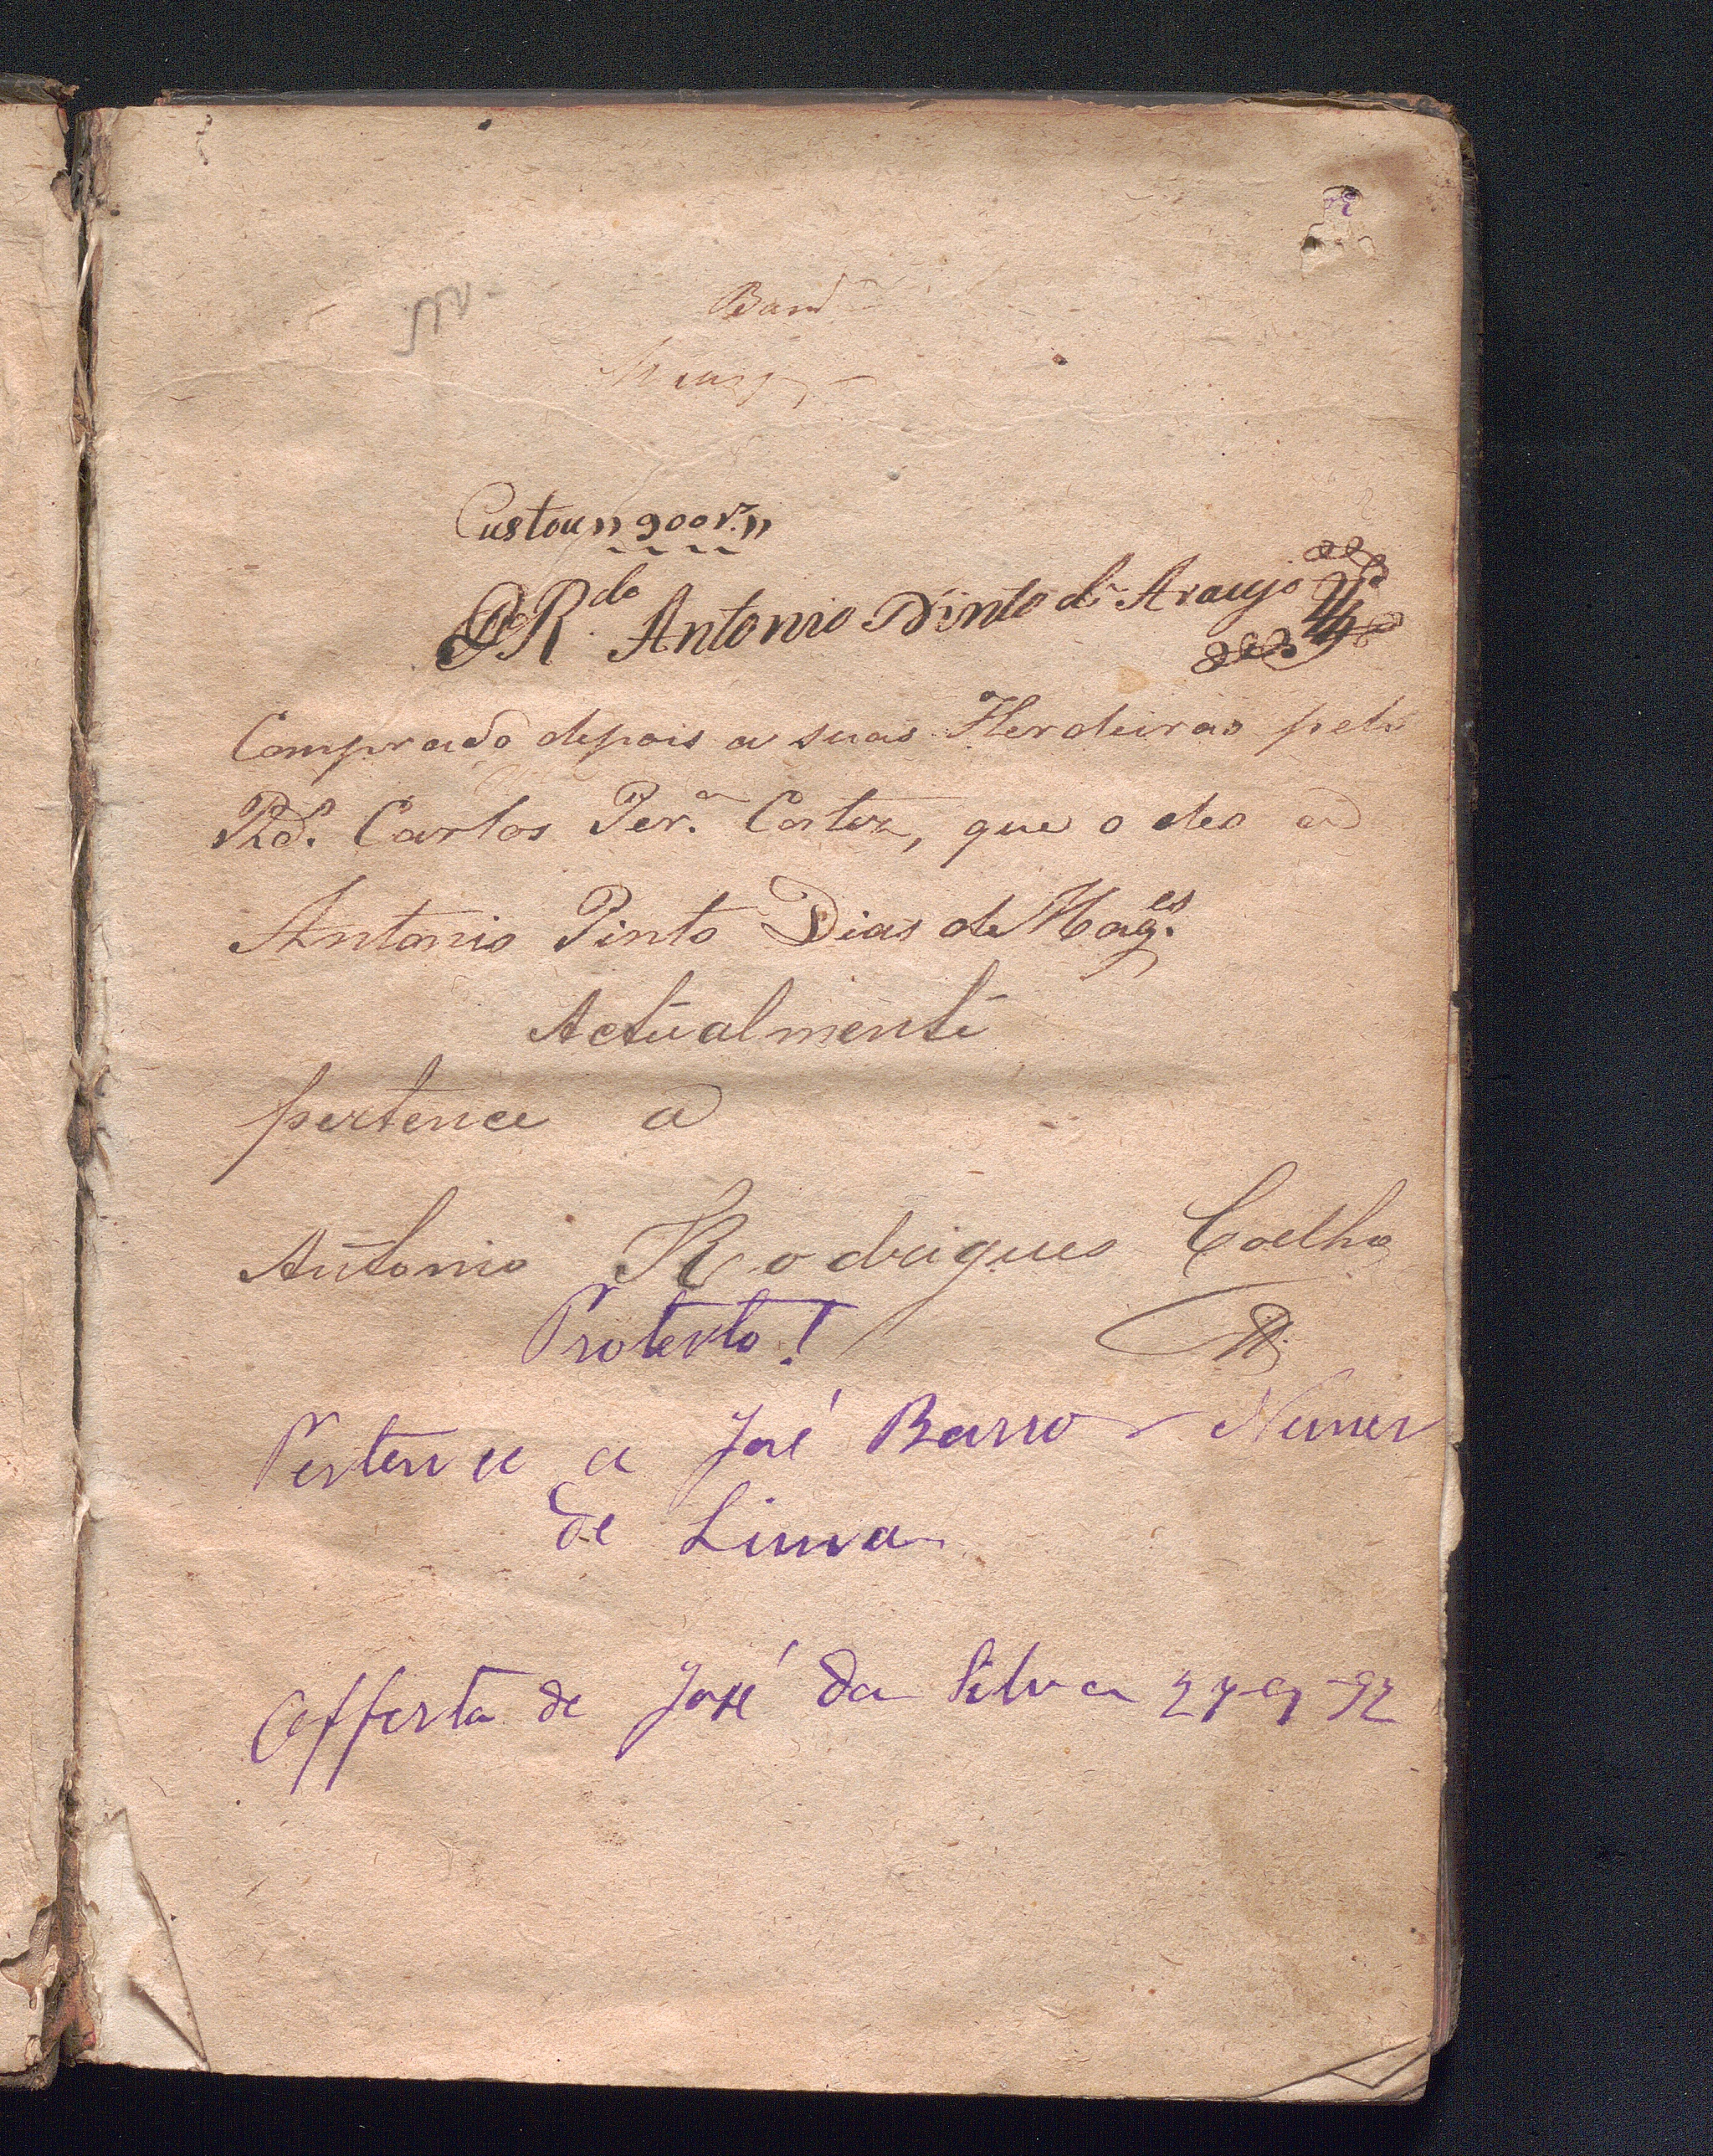 Custou 900 r.s
Do R.do Antonio Pinto de Araujo
Comprado depois a suas Herdeiras pelo
Rd.o Carlos Per.a Cortez, que o deo a
Antonio Pinto Dias de Mag.es
Actualmente
pertence a
Antonio Rodrigues Coelho
Protesto!
Pertence a José Barros Nunes
de Lima
Offerta de José da Silva 27-9-92